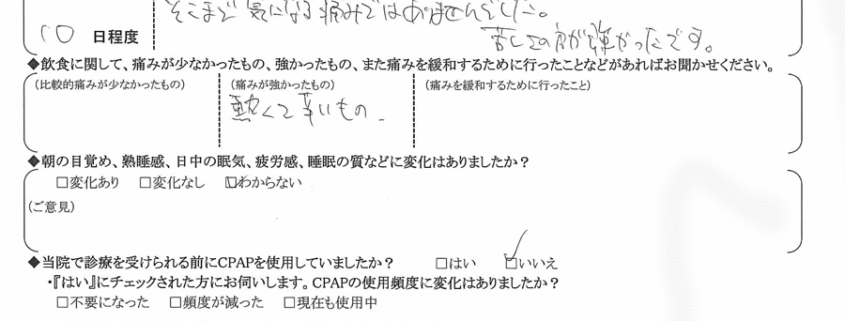 そこまで気になる痛みではありませんでした。
10 日程度
苦しさの方が強かったです。
◆飲食に関して、痛みが少なかったもの、強かったもの、また痛みを緩和するために行ったことなどがあればお聞かせください。
(比較的痛みが少なかったもの) (痛みが強かったもの) (痛みを緩和するために行ったこと)
熱くて辛いもの.
◆朝の目覚め、熟睡感、日中の眠気、疲労感、睡眠の質などに変化はありましたか?
□変化あり □変化なし ☑わからない
(ご意見)
◆当院で診療を受けられる前にCPAPを使用していましたか? □はい ☑いいえ
・『はい』にチェックされた方にお伺いします。CPAPの使用頻度に変化はありましたか?
□不要になった □頻度が減った □現在も使用中